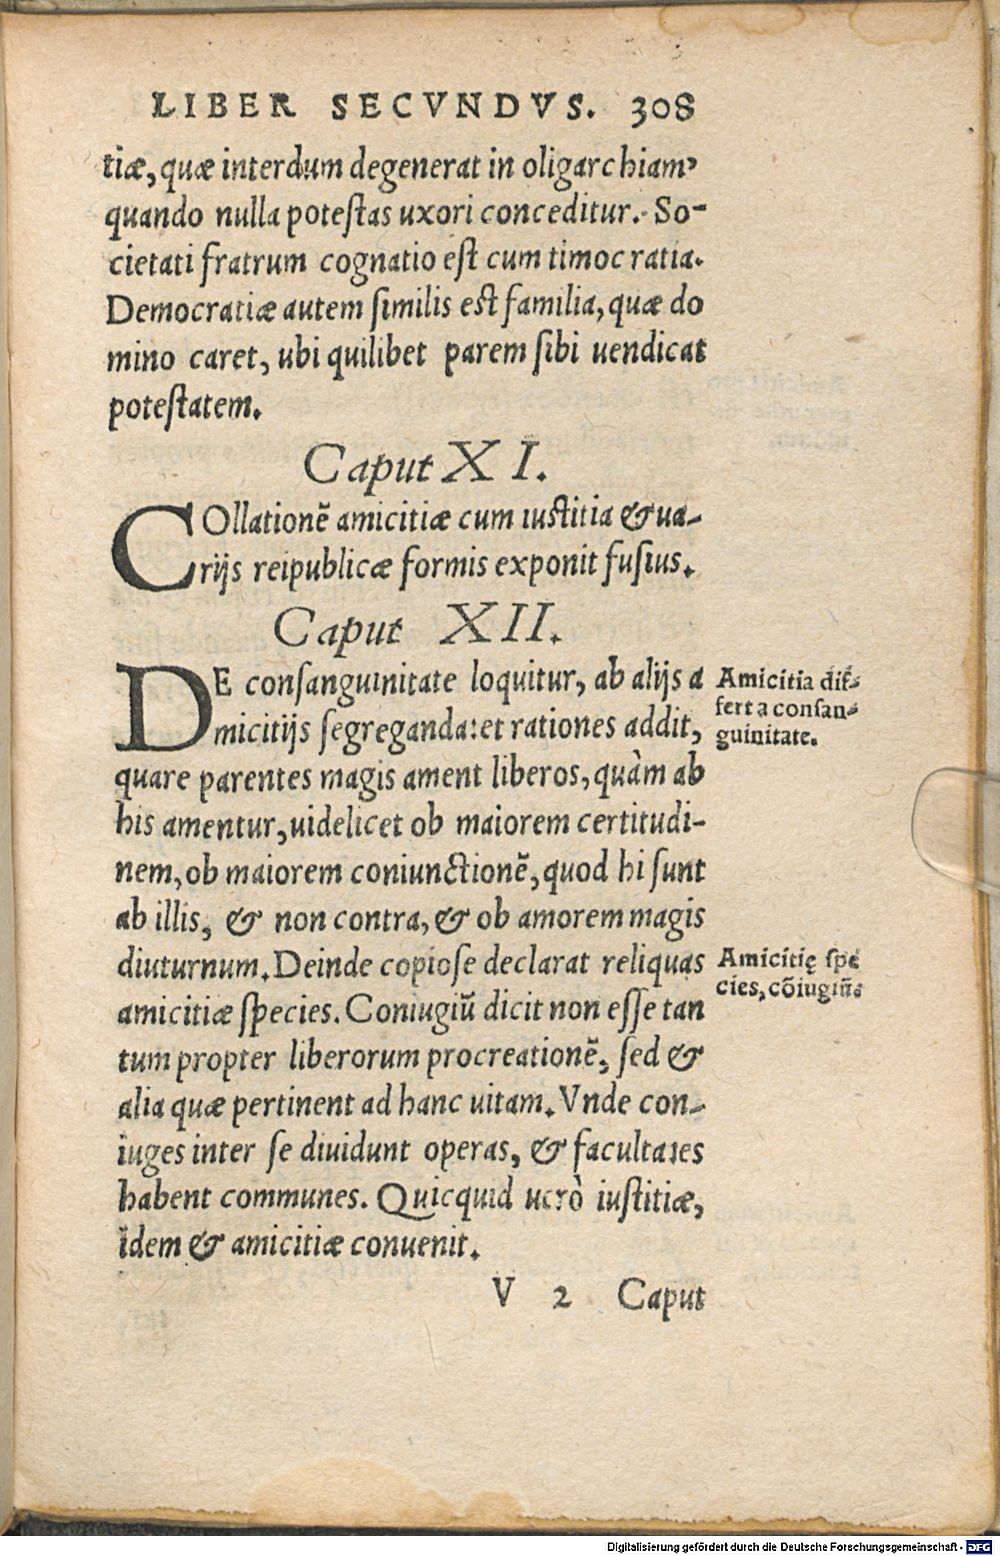 LIBER SECVNDVS. 308
tiæ, quæ interdum degenerat in oligarchiam,
quando nulla potestas uxori conceditur. So-
cietati fratrum cognatio est cum timocratia.
Democratiæ autem similis est familia, quæ do
mino caret, ubi quilibet parem sibi uendicat
potestatem.
Caput XI.
COllationē amicitiæ cum iustitia & ua-
rijs reipublicæ formis exponit fusius.
Caput XII.
DE consanguinitate loquitur, ab alijs a
micitijs segreganda: et rationes addit,
quare parentes magis ament liberos, quàm ab
his amentur, uidelicet ob maiorem certitudi-
nem, ob maiorem coniunctionē, quod hi sunt
ab illis, & non contra, & ob amorem magis
diuturnum. Deinde copiose declarat reliquas
amicitiæ species. Coniugiū dicit non esse tan
tum propter liberorum procreationē, sed &
alia quæ pertinent ad hanc uitam. Vnde con-
iuges inter se diuidunt operas, & facultates
habent communes. Quicquid uerò iustitiæ,
idem & amicitiæ conuenit.
Amicitia dif-
fert a consan-
guinitate.
Amicitię spe
cies, cōiugiū.
V 2 Caput
Digitalisierung gefördert durch die Deutsche Forschungsgemeinschaft - DFG